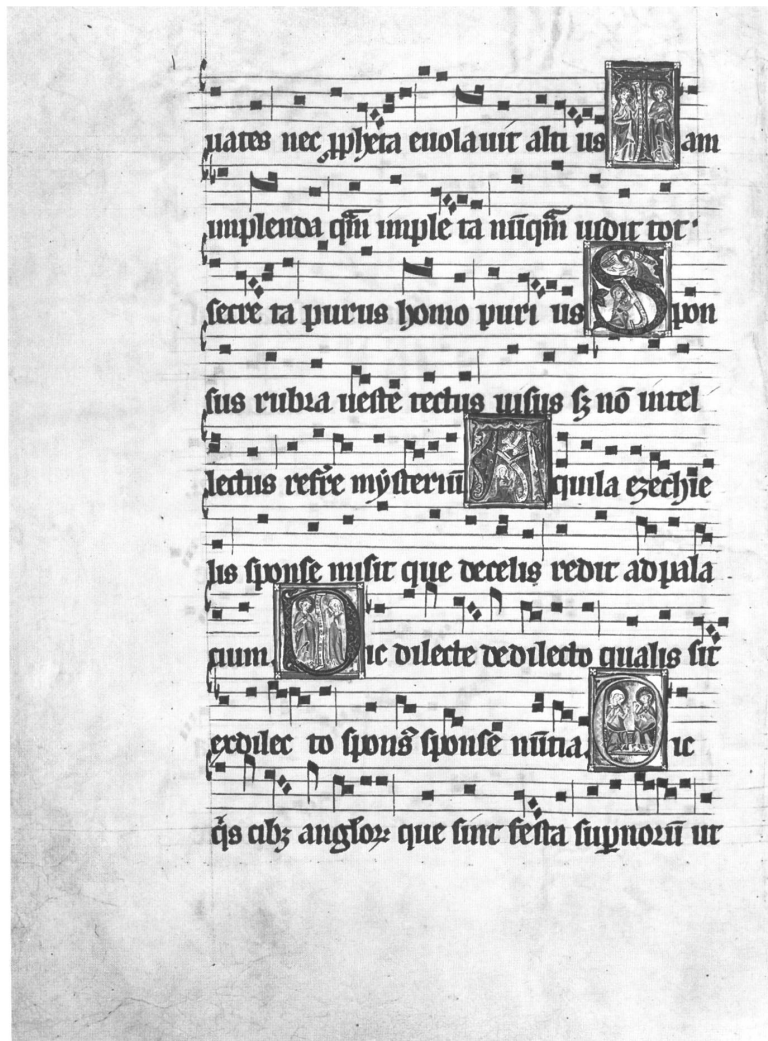 uates nec ꝓpheta euolauit alti us Tam
implenda qm̄ imple ta nūqm̄ uidit tot
secre ta purus homo puri us Spon
sus rubra ueste tectus uisus sꝫ nō intel
lectus refre mysteriū Aquila ezechie
lis sponse misit que decelis redit ad pala
cium Dic dilecte dedilecto qualis sit
exdilec to sponsꝰ sponse nūtia Dic
q̇s cibꝫ angloꝝ que sint festa suꝑnorū ut